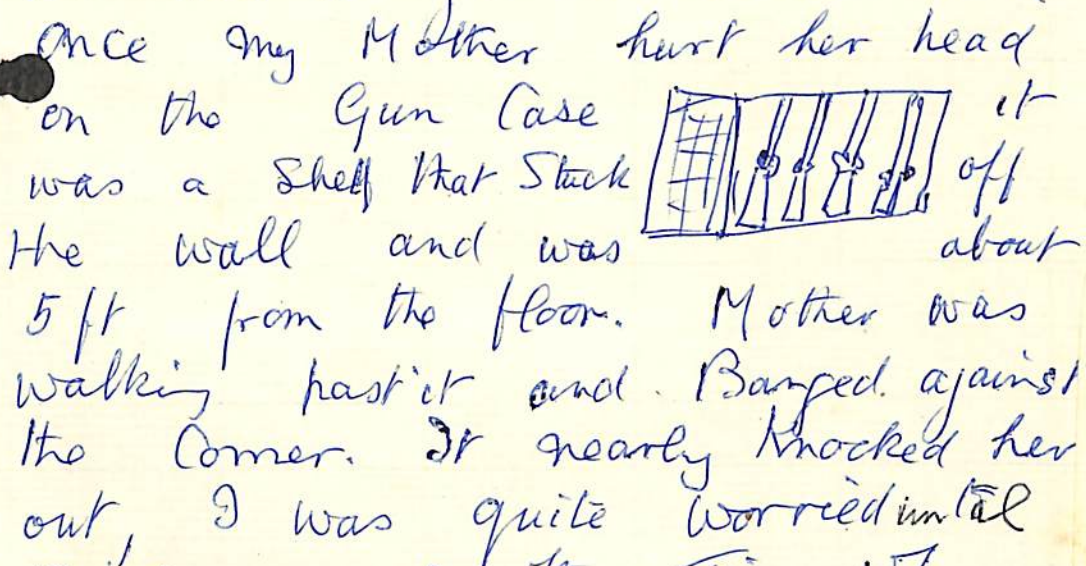 Once my Mother hurt her head
on the Gun Case it
was a Shelf that Stuck off
the wall and was about
5 ft from the floor. Mother was
walking past it and. Banged. against
the Corner. It nearly Knocked her
out, I was quite worried until